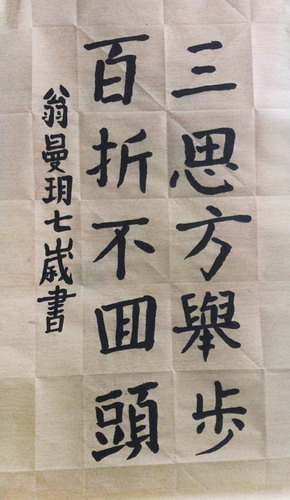 三思方舉步
百折不囬頭
翁曼玥七歲書